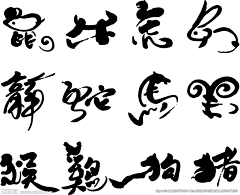 鼠 牛 虎 兔
龍 蛇 馬 羊
猴 鷄 狗 猪